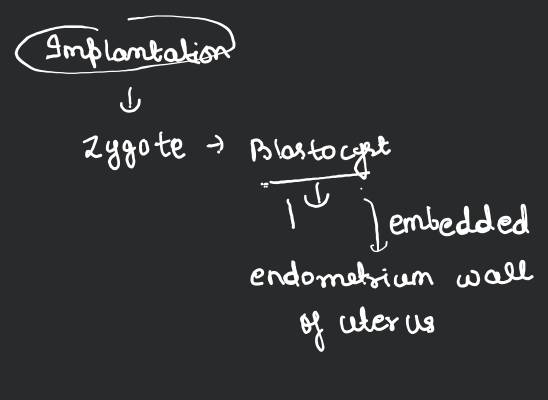 Implantation
↓
Zygote → Blastocyst
↓
embedded
endometrium wall
of uterus